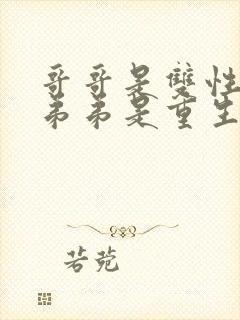 哥哥是雙性
弟弟是重生
若菀